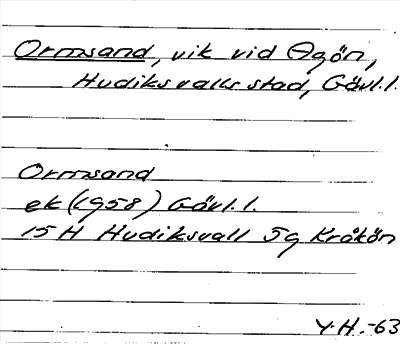 Ormsand, vik vid Agön,
Hudiksvalls stad, Gävl.l.
Ormsand
ek (1958) Gävl.l.
15 H Hudiksvall 5g Kråkön
Y.H.-63